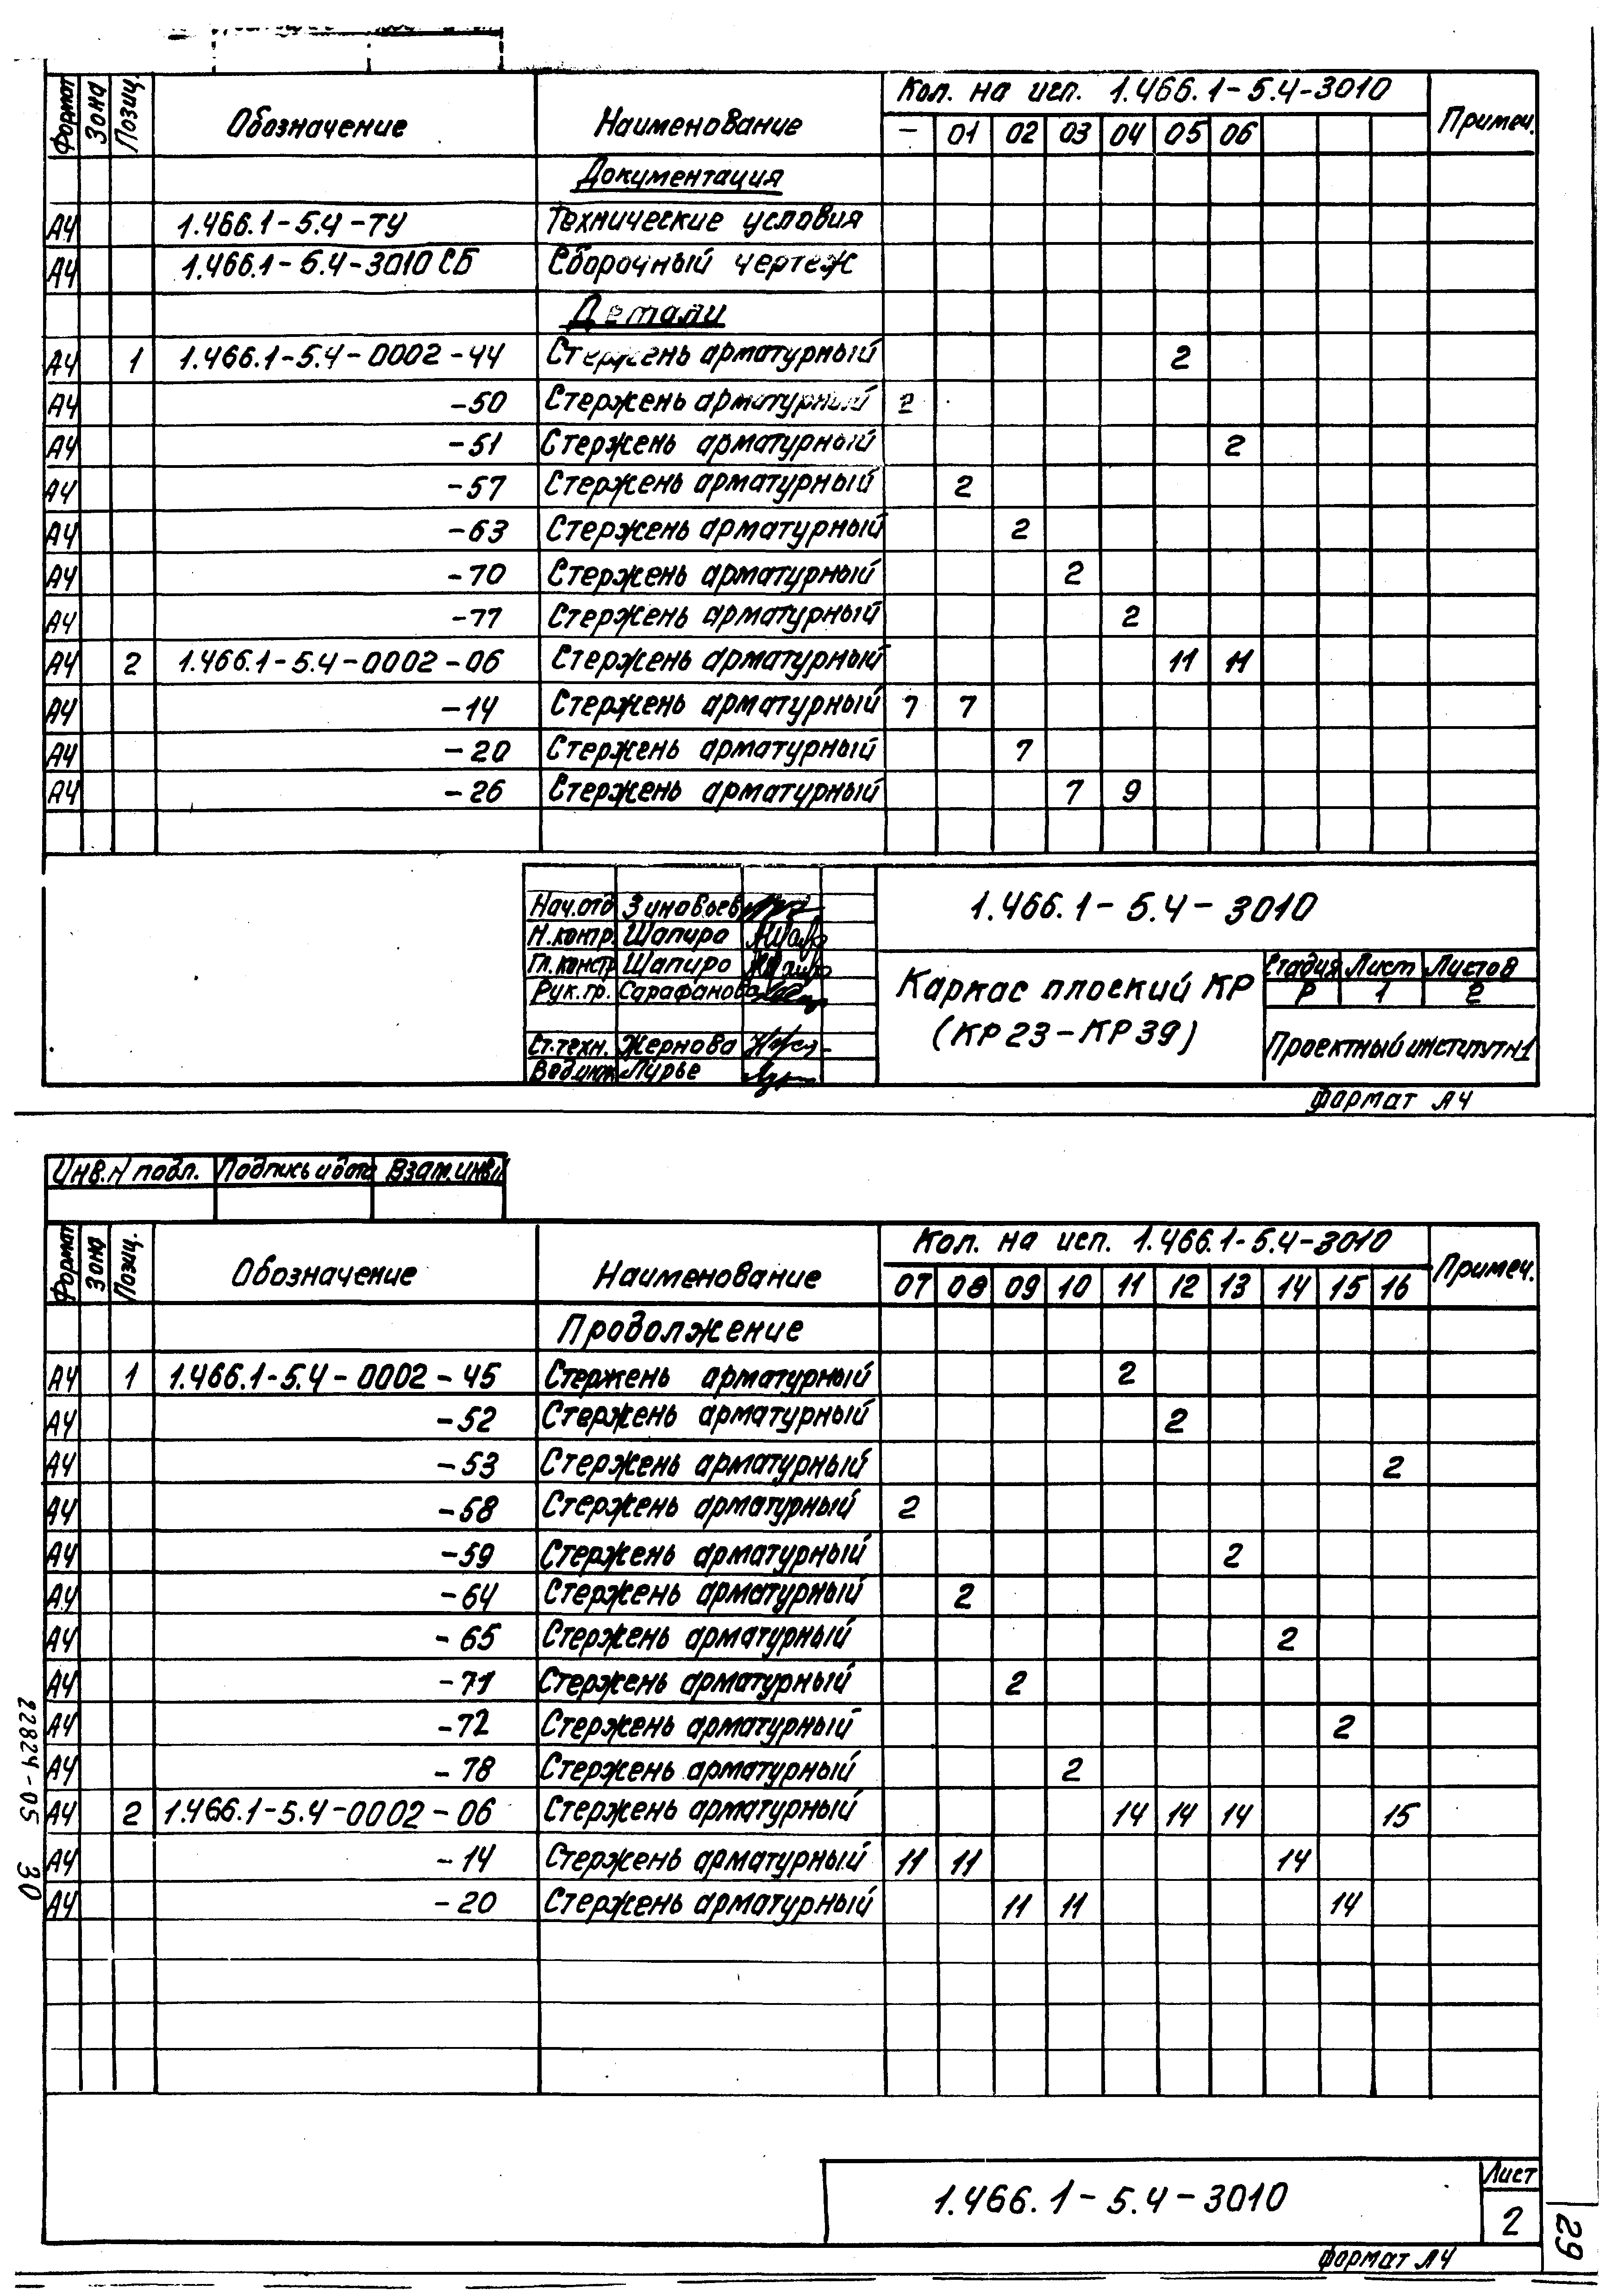 Формат Зона Позиц. Обозначение Наименование Кол. на исп. 1.466.1-5.4-3010 Примеч.
— 01 02 03 04 05 06
Документация
А4 1.466.1-5.4-ТУ Технические условия
А4 1.466.1-5.4-3010 СБ Сборочный чертеж
Детали
А4 1 1.466.1-5.4-0002-44 Стержень арматурный 2
А4 -50 Стержень арматурный 2
А4 -51 Стержень арматурный 2
А4 -57 Стержень арматурный 2
А4 -63 Стержень арматурный 2
А4 -70 Стержень арматурный 2
А4 -77 Стержень арматурный 2
А4 2 1.466.1-5.4-0002-06 Стержень арматурный 11 11
А4 -14 Стержень арматурный 7 7
А4 -20 Стержень арматурный 7
А4 -26 Стержень арматурный 7 9
Нач.отд Зиновьев
Н.контр. Шапиро
Гл.констр Шапиро
Рук.гр. Сарафанова
Ст.техн. Жернова
Вед.инж. Лурье
1.466.1-5.4-3010
Каркас плоский КР
(КР23-КР39)
Стадия Лист Листов
Р 1 2
Проектный институт №1
Формат А4
Инв.№ подл. Подпись и дата Взам.инв.№
Формат Зона Позиц. Обозначение Наименование Кол. на исп. 1.466.1-5.4-3010 Примеч.
07 08 09 10 11 12 13 14 15 16
Продолжение
А4 1 1.466.1-5.4-0002-45 Стержень арматурный 2
А4 -52 Стержень арматурный 2
А4 -53 Стержень арматурный 2
А4 -58 Стержень арматурный 2
А4 -59 Стержень арматурный 2
А4 -64 Стержень арматурный 2
А4 -65 Стержень арматурный 2
А4 -71 Стержень арматурный 2
А4 -72 Стержень арматурный 2
А4 -78 Стержень арматурный 2
А4 2 1.466.1-5.4-0002-06 Стержень арматурный 14 14 14 15
А4 -14 Стержень арматурный 11 11 14
А4 -20 Стержень арматурный 11 11 14
22824-05 30
1.466.1-5.4-3010
Лист
2
Формат А4
29